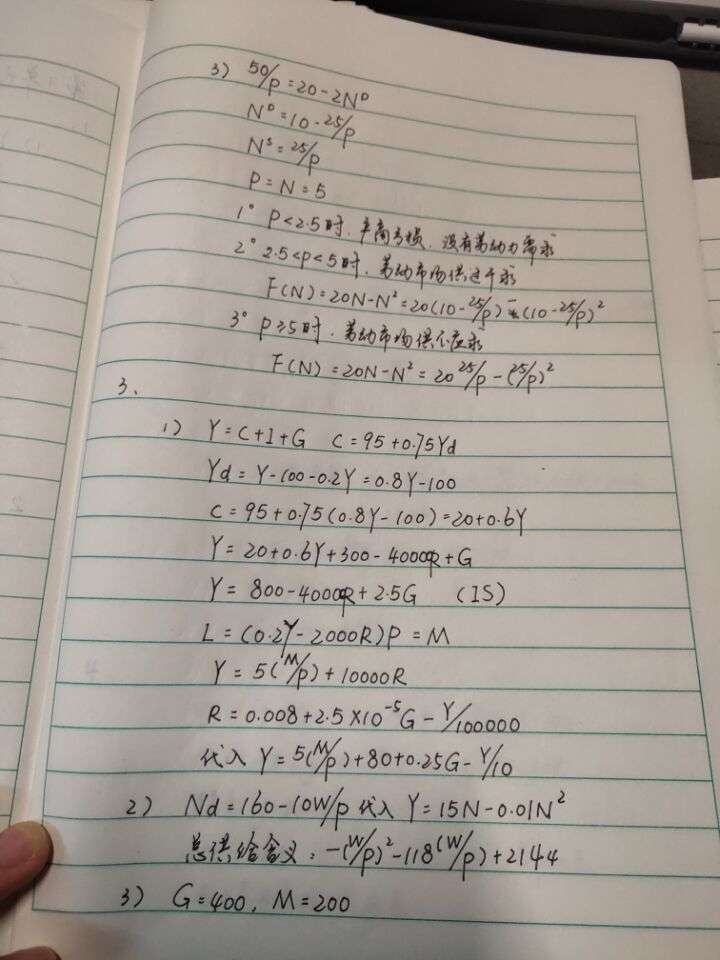 3) 50/p=20-2Nᴰ
Nᴰ=10-25/p
Nˢ=25/p
P=N=5
1° P<2.5时, 厂商亏损, 没有劳动力需求
2° 2.5<P<5时, 劳动市场供过于求
F(N)=20N-N²=20(10-25/p)-(10-25/p)²
3° P≥5时, 劳动市场供不应求
F(N)=20N-N²=20 25/p-(25/p)²
3、
1) Y=C+I+G C=95+0.75Yd
Yd=Y-100-0.2Y=0.8Y-100
C=95+0.75(0.8Y-100)=20+0.6Y
Y=20+0.6Y+300-4000R+G
Y=800-4000R+2.5G (IS)
L=(0.2Y-2000R)P=M
Y=5(M/p)+10000R
R=0.008+2.5×10⁻⁵G-Y/100000
代入 Y=5(M/p)+80+0.25G-Y/10
2) Nd=160-10W/p 代入 Y=15N-0.01N²
总供给含义: -(W/p)²-118(W/p)+2144
3) G=400, M=200